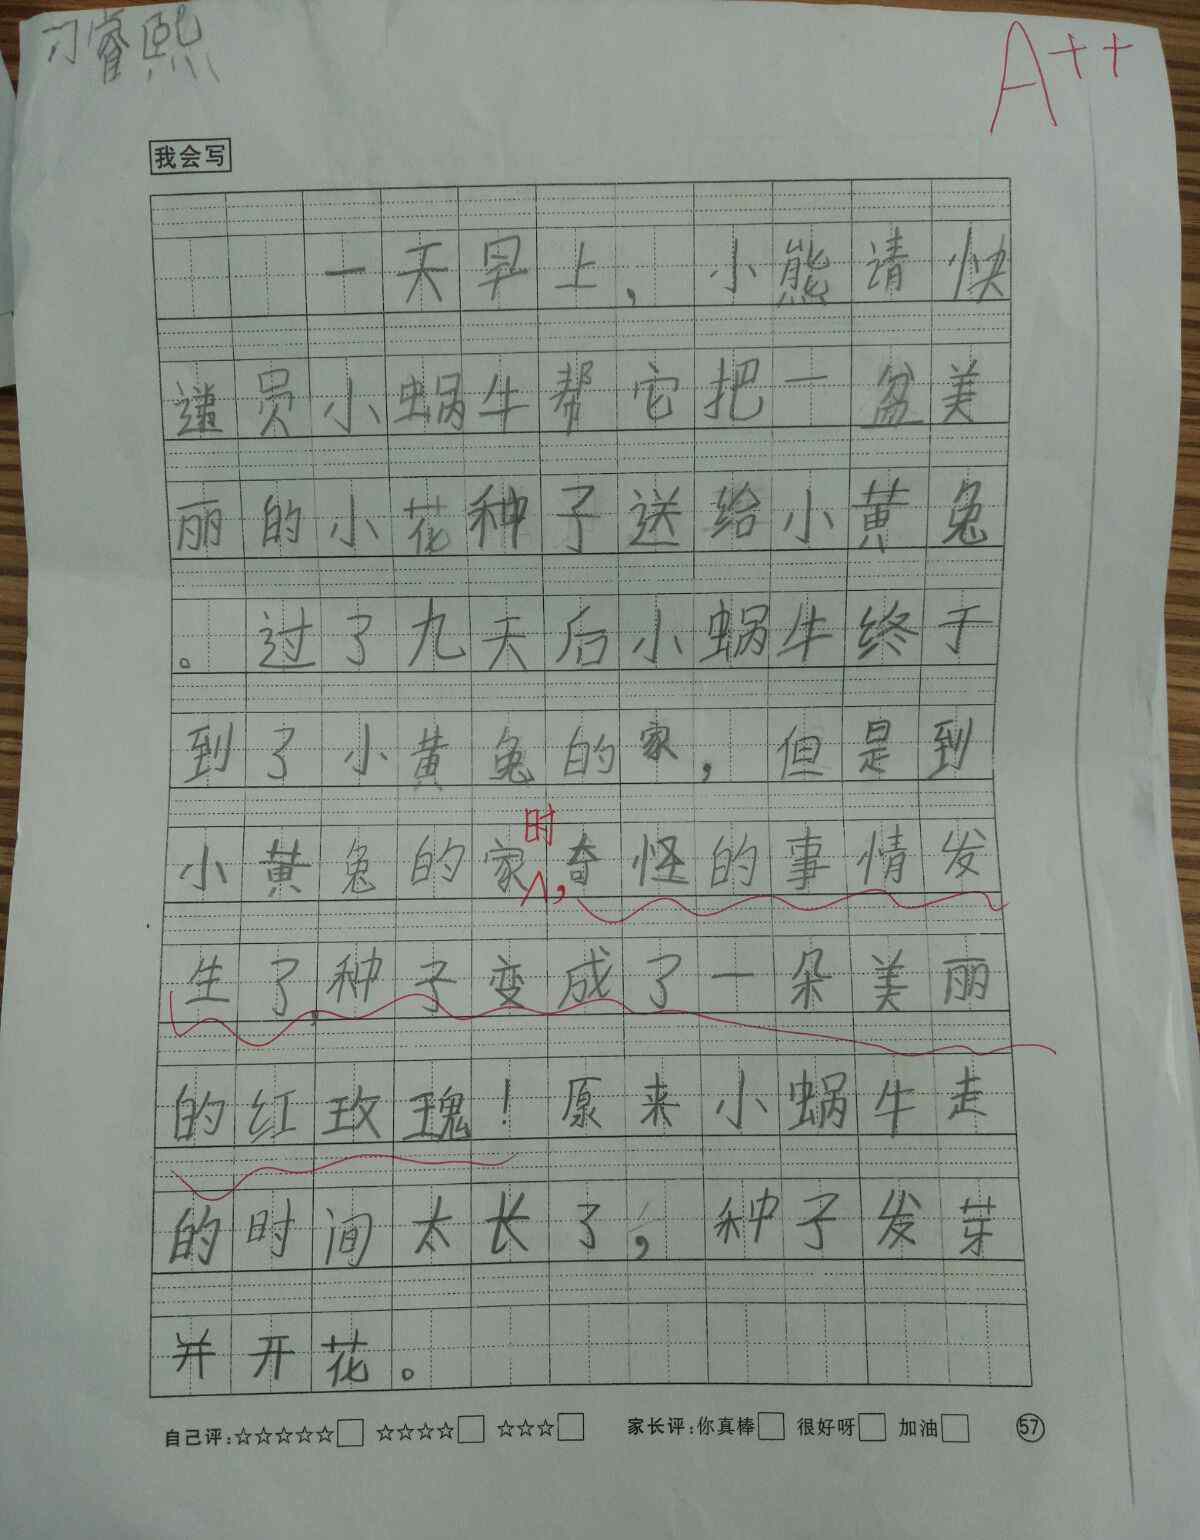 刁睿熙
A++
我会写
一天早上，小熊请快
递员小蜗牛帮它把一盆美
丽的小花种子送给小黄兔
。过了九天后小蜗牛终于
到了小黄兔的家，但是到
小黄兔的家时，奇怪的事情发
生了，种子变成了一朵美丽
的红玫瑰！原来小蜗牛走
的时间太长了，种子发芽
并开花。
自己评：☆☆☆☆☆□ ☆☆☆☆□ ☆☆☆□ 家长评：你真棒□ 很好呀□ 加油□ 57